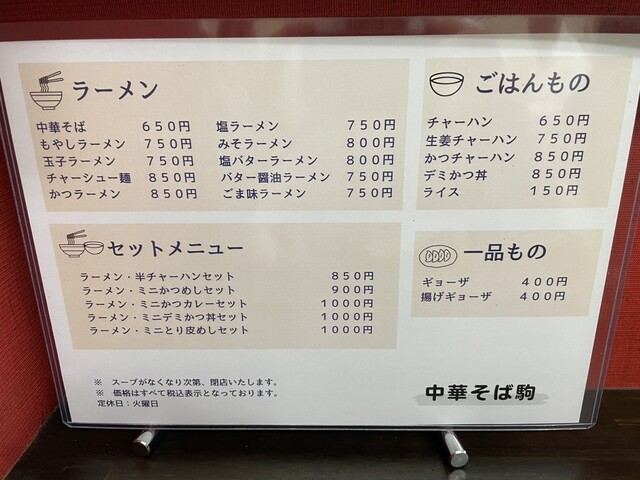 ラーメン
中華そば 650円
もやしラーメン 750円
玉子ラーメン 750円
チャーシュー麺 850円
かつラーメン 850円
塩ラーメン 750円
みそラーメン 800円
塩バターラーメン 800円
バター醤油ラーメン 750円
ごま味ラーメン 750円
ごはんもの
チャーハン 650円
生姜チャーハン 750円
かつチャーハン 850円
デミかつ丼 850円
ライス 150円
セットメニュー
ラーメン・半チャーハンセット 850円
ラーメン・ミニかつめしセット 900円
ラーメン・ミニかつカレーセット 1000円
ラーメン・ミニデミかつ丼セット 1000円
ラーメン・ミニとり皮めしセット 1000円
一品もの
ギョーザ 400円
揚げギョーザ 400円
※ スープがなくなり次第、閉店いたします。
※ 価格はすべて税込表示となっております。
定休日：火曜日
中華そば駒